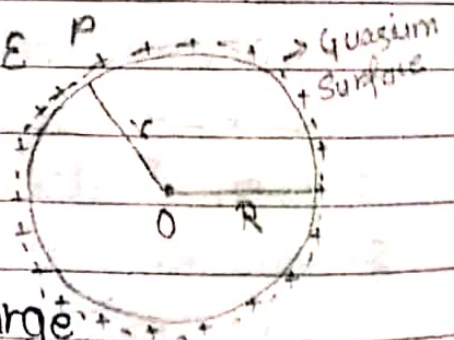 E P → Guasium
Surface
r
O R
arge